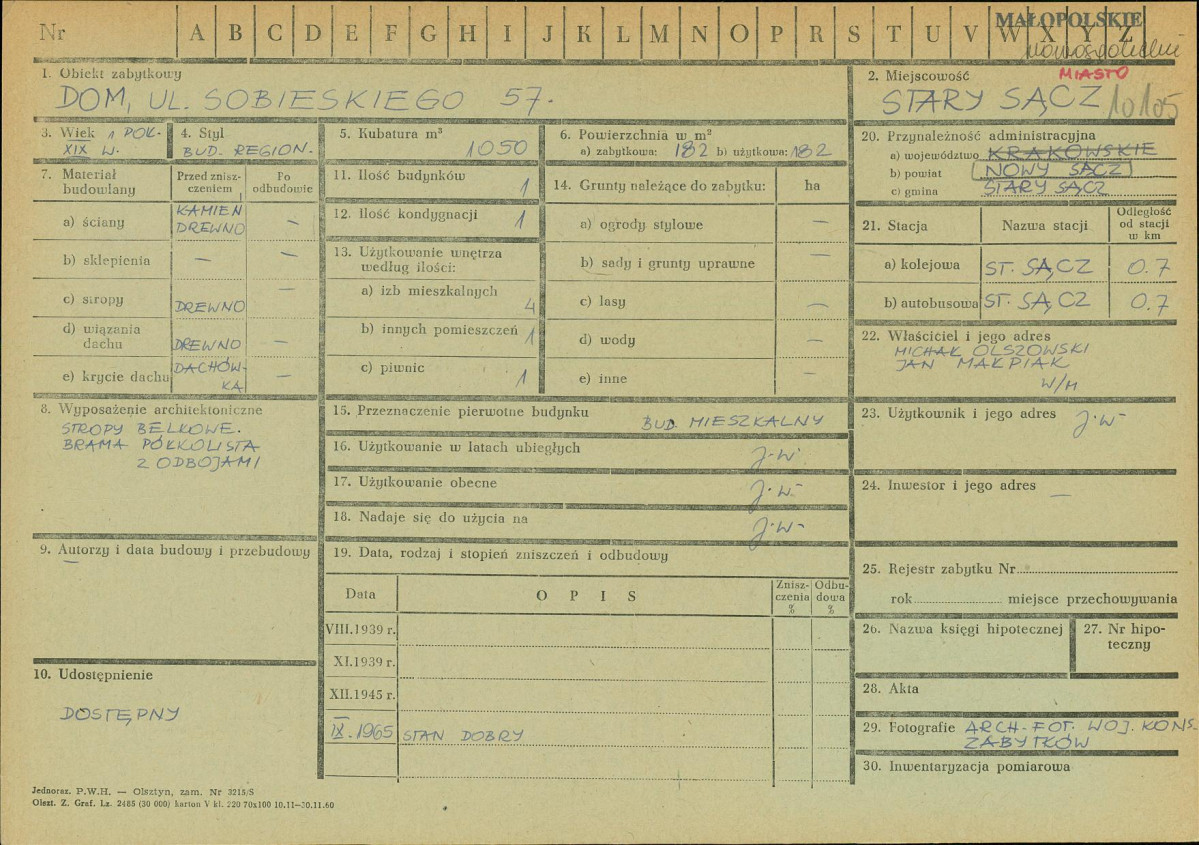 Nr A B C D E F G H I J K L M N O P R S T U V W X Y Z
MAŁOPOLSKIE
nowosądecki
1. Obiekt zabytkowy
DOM, UL. SOBIESKIEGO 57.
2. Miejscowość MIASTO
STARY SĄCZ 10105
3. Wiek 1 POŁ.
XIX W.
4. Styl
BUD. REGION.
5. Kubatura m³
1050
6. Powierzchnia w m²
a) zabytkowa: 182 b) użytkowa: 182
20. Przynależność administracyjna
a) województwo KRAKOWSKIE
b) powiat NOWY SĄCZ
c) gmina STARY SĄCZ
7. Materiał budowlany
Przed zniszczeniem
Po odbudowie
a) ściany KAMIEŃ
DREWNO —
b) sklepienia — —
c) stropy DREWNO —
d) wiązania
dachu DREWNO —
e) krycie dachu DACHÓW-
KA —
11. Ilość budynków 1
12. Ilość kondygnacji 1
13. Użytkowanie wnętrza
według ilości:
a) izb mieszkalnych 4
b) innych pomieszczeń 1
c) piwnic 1
14. Grunty należące do zabytku: ha
a) ogrody stylowe —
b) sady i grunty uprawne —
c) lasy —
d) wody —
e) inne —
21. Stacja Nazwa stacji Odległość
od stacji
w km
a) kolejowa ST. SĄCZ 0.7
b) autobusowa ST. SĄCZ 0.7
22. Właściciel i jego adres
MICHAŁ OLSZOWSKI
JAN MAŁPIAK
W/M
8. Wyposażenie architektoniczne
STROPY BELKOWE.
BRAMA PÓŁKOLISTA
Z ODBOJAMI
15. Przeznaczenie pierwotne budynku
BUD. MIESZKALNY
16. Użytkowanie w latach ubiegłych
J.W.
17. Użytkowanie obecne J.W.
18. Nadaje się do użycia na J.W.
23. Użytkownik i jego adres J.W.
24. Inwestor i jego adres —
9. Autorzy i data budowy i przebudowy
—
19. Data, rodzaj i stopień zniszczeń i odbudowy
Data O P I S Znisz-
czenia
% Odbu-
dowa
%
VIII.1939 r.
XI.1939 r.
XII.1945 r.
IX.1965 STAN DOBRY
25. Rejestr zabytku Nr
rok miejsce przechowywania
26. Nazwa księgi hipotecznej
27. Nr hipo-
teczny
10. Udostępnienie
DOSTĘPNY
28. Akta
29. Fotografie ARCH. FOT. WOJ. KONS.
ZABYTKÓW
30. Inwentaryzacja pomiarowa
Jednoraz. P.W.H. — Olsztyn, zam. Nr 3215/S
Olszt. Z. Graf. Lz. 2485 (30 000) karton V kl. 220 70x100 10.11—30.11.60